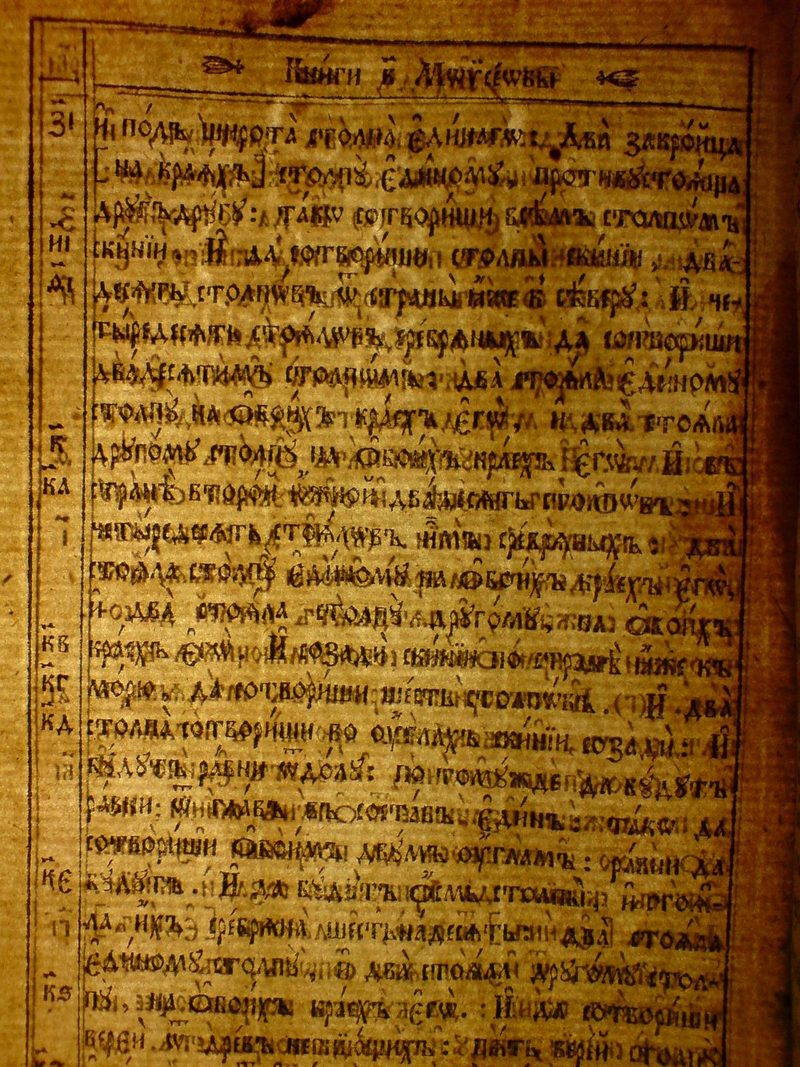 Кни́ги в҃ Мѡѷсе́ѡвы
з҃і
и҆ по́лъ широта̀ столпа̀ є҆ди́нагѡ: Два̀ закро́йца
[на края́хъ] столпꙋ̀ є҆ди́номꙋ, противꙋстоѧ̑ща
дрꙋ́гъ дрꙋ́гꙋ: та́кѡ сотвори́ши всѣ̑мъ столпѡ́мъ
и҃і
ски́нїи. И҆ да сотвори́ши столпы̀ ски́нїи, два́-
десѧть столпѡ́въ ѿ страны̀ ꙗ҆́же к̾ сѣ́верꙋ: И҆ че-
ты́редесѧть стоѧ́лѡвъ сре́брѧныхъ да сотвори́ши
два́десѧтимъ столпѡ́мъ: два̀ стоѧ̑ла є҆ди́номꙋ
столпꙋ̀ на ѻ҆бои́хъ кра́ехъ є҆гѡ̀, и҆ два̀ стоѧ̑ла
к҃
дрꙋго́мꙋ столпꙋ̀ на ѻ҆бои́хъ кра́ехъ є҆гѡ̀. И҆ въ
к҃а
странѣ̀ второ́й ю҆́жной два́десѧть столпѡ́въ: И҆
четы́редесѧть стоѧ́лѡвъ и҆̀мъ сре́брѧныхъ: два̀
стоѧ̑ла столпꙋ̀ є҆ди́номꙋ на ѻ҆бои́хъ кра́ехъ є҆гѡ̀,
и҆ два̀ стоѧ̑ла столпꙋ̀ дрꙋго́мꙋ, на ѻ҆бои́хъ
к҃в
кра́ехъ є҆гѡ̀. И҆ созадѝ ски́нїи по странѣ̀ ꙗ҆́же къ
к҃г
мо́рю, да сотвори́ши ше́сть столпѡ́въ. И҆ два̀
к҃д
столпа̀ сотвори́ши во ѹ҆́глахъ ски́нїи созадѝ: И҆
бꙋ́дꙋтъ ра́вни ѿдо́лꙋ: по томꙋ́жде да бꙋ́дꙋтъ
ра́вни ѿ гла́въ въ соста́въ є҆ди́нъ: та́кѡ да
сотвори́ши ѻ҆бои́мъ двѣма̀ ѹ҆гла́мъ: ра́вни да
к҃є
бꙋ́дꙋтъ. И҆ да бꙋ́дꙋтъ ѻ҆́смь столпы̀, и҆ стоѧ̑-
ла и҆́хъ сре́брѧна шестьна́десѧть: два̀ стоѧ̑ла
є҆ди́номꙋ столпꙋ̀, и҆ два̀ стоѧ̑ла дрꙋго́мꙋ стол-
к҃ѕ
пꙋ̀, на ѻ҆бои́хъ кра́ехъ є҆гѡ̀. И҆ да сотвори́ши
вереѝ ѿ дре́въ негнїю́щихъ: пѧ́ть вере́й столпꙋ̀